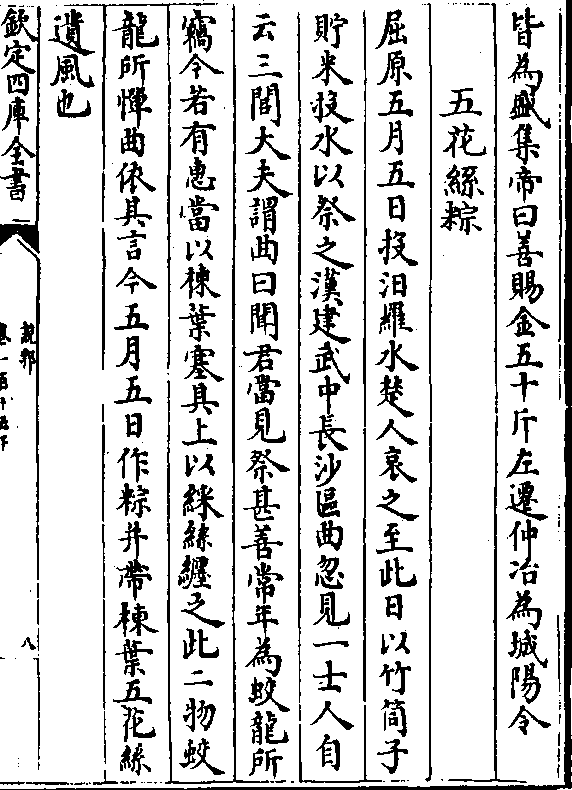 皆為盛集帝曰善賜金五十斤左遷仲冶為城陽令
五花絲粽
屈原五月五日投汨羅水楚人哀之至此日以竹筒子
貯米投水以祭之漢建武中長沙區曲忽見一士人自
云三閭大夫謂曲曰聞君當見祭甚善常年為蛟龍所
竊今若有惠當以楝葉塞其上以綵絲纒之此二物蛟
龍所憚曲依其言今五月五日作粽并帶楝葉五花絲
遺風也
欽定四庫全書
説郛
卷一百十五下
八